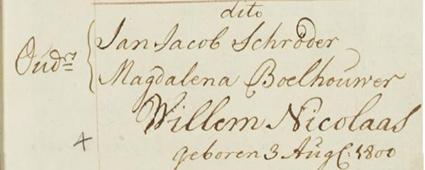 dito
Jan Jacob Schröder
Oudrs
Magdalena Boelhouwer
Willem Nicolaas
geboren 3 Augs: 1800